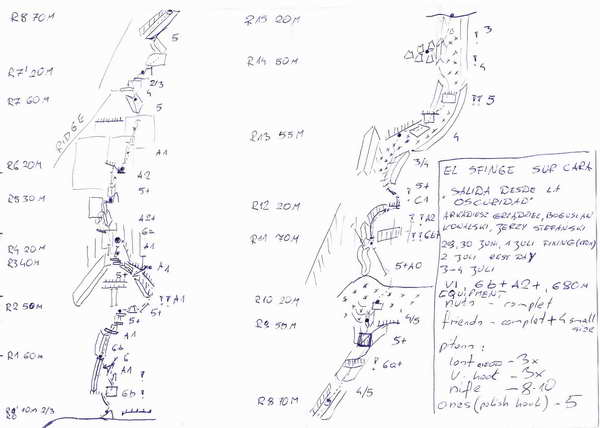 R8 70M
5
R7' 20M
2/3
R7 60M
4
5
RIDGE
A1
R6 20M
A2
R5 30M
5+
A2+
6a
R4 20M
A1
R3 40M
A1
5+
R2 50M
? ? A1
5+
5+
A1
R1 60M
6b
6
A1
?
6b
!
10M 2/3
R15 20M
3
?
R14 60M
?
4
? ? 5
R13 55M
4
3/4
5+
R12 20M
C1
? ? A2
R11 70M
? ? C6+
5+A0
R10 20M
4/5
R9 55M
5+
?
6a+
4/5
R8 70M
EL SFINGE SUR CARA
"SALIDA DESDE LA
OSCURIDAD"
ARKADIUSZ GRZĄDZIEL, BOGUSŁAW
KOWALSKI, JERZY STEFAŃSKI
29,30 JUNI, 1 JULI FIXING
2 JULI REST DAY
3-4 JULI
VI, 6b+ A2+, 680M
EQUIPMENT
nuts - complet
friends - complet + 4 small
size
pitons:
lost - 3x
V-hook - 3x
nife - 8-10
ones (polish hook) - 5